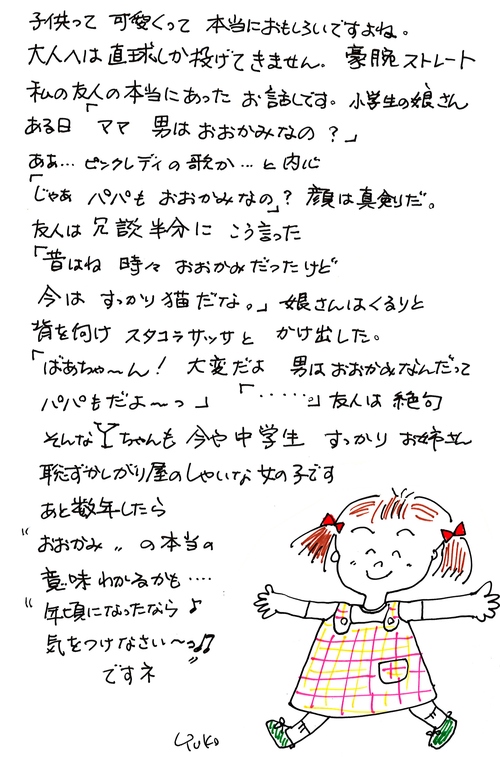 子供って 可愛くって 本当におもしろいですよね。
大人へは 直球しか投げてきません。 豪腕ストレート
私の友人の本当にあった お話しです。 小学生の娘さん
ある日 「ママ 男は おおかみなの ?」
ああ… ピンクレディの歌か … と 内心
「じゃあ パパも おおかみなの」? 顔は真剣だ。
友人は 冗談半分に こう言った
「昔はね 時々 おおかみだったけど
今は すっかり猫だな。」 娘さんはくるりと
背を向け スタコラサッサと かけ出した。
「ばあちゃ〜ん! 大変だよ 男はおおかみなんだって
パパもだよ〜っ」 「‥‥‥。」友人は 絶句
そんなYちゃんも 今や中学生 すっかり お姉さん
恥ずかしがり屋のしゃいな女の子です
あと数年したら
“おおかみ〃 の本当の
意味わかるかも ‥‥
“年頃になったなら♪
気をつけなさい〜っ♫〃
ですネ
Yuko